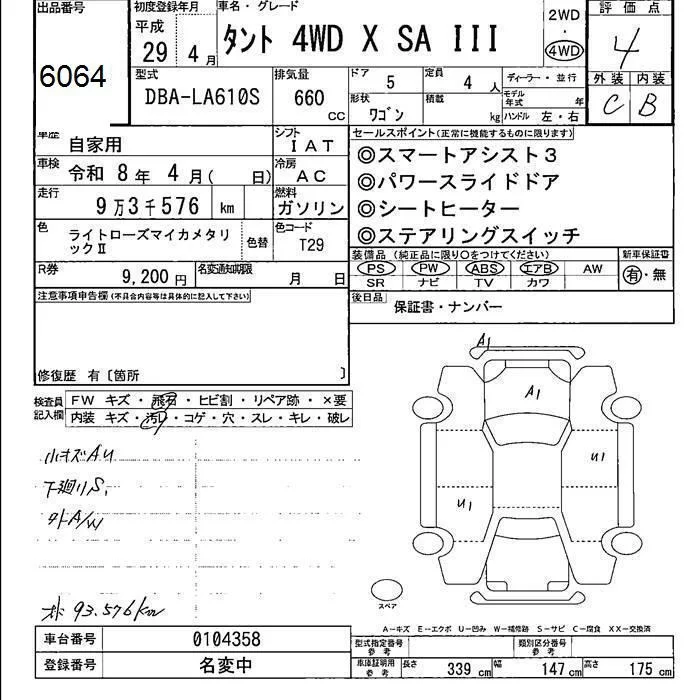 出品番号
6064
初度登録年月
平成
29 4 月
車名・グレード
タント 4WD X SA III
2WD
・
4WD
評価点
4
外装 内装
C B
型式
DBA-LA610S
排気量
660
CC
ドア
5
定員
4 人
ディーラー・並行
形状
ワゴン
積載
kg
モデル
年式
年
ハンドル 左・右
車歴
自家用
シフト
IAT
車検
令和 8 年 4 月( 日)
冷房
AC
走行
9万3千576 km
燃料
ガソリン
色
ライトローズマイカメタリ
ックⅡ
色替
色コード
T29
R券
9,200 円
名変通知期限
月 日
セールスポイント(正常に機能するものに限ります)
◎スマートアシスト3
◎パワースライドドア
◎シートヒーター
◎ステアリングスイッチ
装備品 (純正品に限り○をつけてください)
PS PW ABS エアB AW
SR ナビ TV カワ
新車保証書
有・無
後日品
保証書・ナンバー
注意事項申告欄(不具合内容等は具体的に記入して下さい)
修復歴 有〔箇所 〕
検査員
記入欄
FW キズ・飛石・ヒビ割・リペア跡・×要
内装 キズ・汚れ・コゲ・穴・スレ・キレ・破レ
小キズAU
下廻りS,
外A/W
93.576km
A1
A1
U1
U1
スペア
A―キズ E―エクボ U―凹み W―補修跡 S―サビ C―腐食 XX―交換済
車台番号
0104358
登録番号
名変中
型式指定番号
参考
類別区分番号
参考
車庫証明用
参考
長さ
339 cm
幅
147 cm
高さ
175 cm